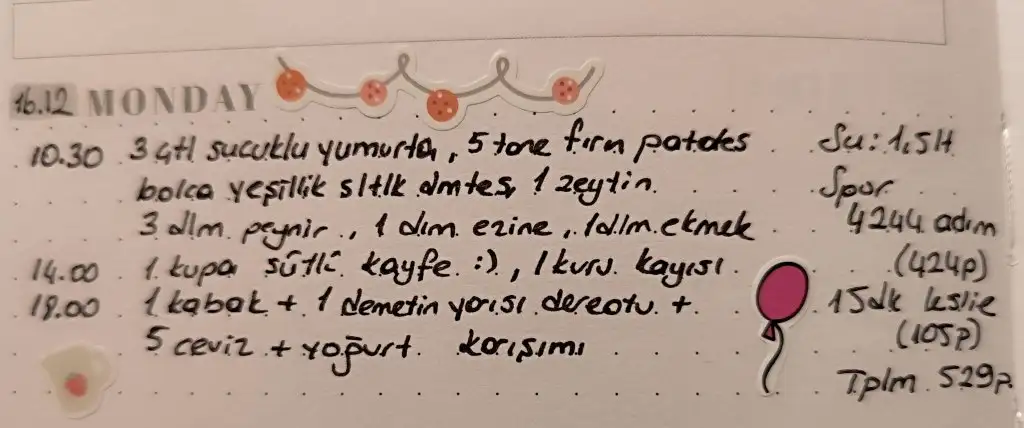 16.12 MONDAY
10.30 3 çtl sucuklu yumurta, 5 tane fırın patates
bolca yeşillik sltlk dmtes, 1 zeytin
3 dlm peynir, 1 dlm ezine, 1 dlm ekmek
14.00 1 kupa sütlü kayfe :), 1 kuru kayısı
19.00 1 kabak + 1 demetin yarısı dereotu +
5 ceviz + yoğurt karışımı
Su: 1,5 lt
Spor
4244 adım
(424p)
15dk leslie
(105p)
Tplm 529p